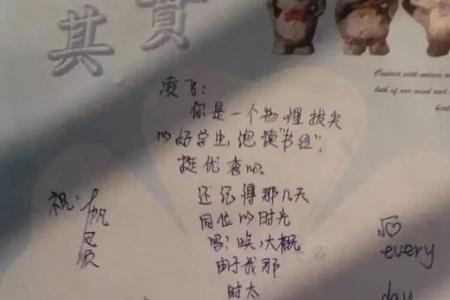 其贾
Contact with nature
both of our mind and
凌飞：
你是一个物理拔尖
的好学生，饱读“书经”，
挺优秀吧。
还记得那几天
同位的时光
吗？唉，大概
由于我那
时太
祝：
every
day